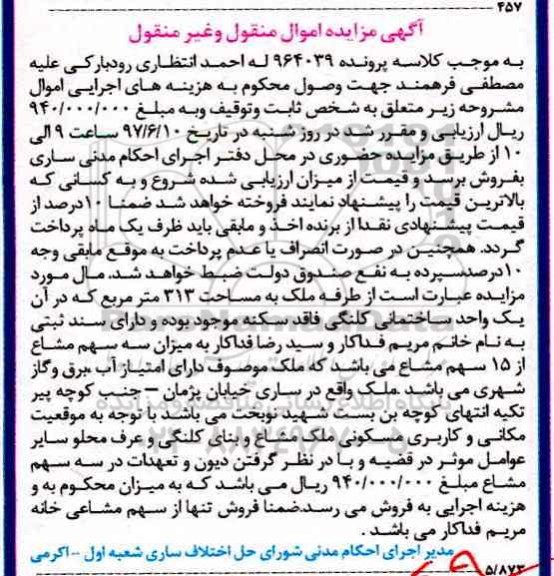 ۴۵۷
آگهی مزایده اموال منقول وغیر منقول
به موجب کلاسه پرونده ۹۶۴۰۳۹ له احمد انتظاری رودبارکی علیه
مصطفی فرهمند جهت وصول محکوم به هزینه های اجرایی اموال
مشروحه زیر متعلق به شخص ثابت وتوقیف وبه مبلغ ۹۴۰/۰۰۰/۰۰۰
ریال ارزیابی و مقرر شد در روز شنبه در تاریخ ۹۷/۶/۱۰ ساعت ۹ الی
۱۰ از طریق مزایده حضوری در محل دفتر اجرای احکام مدنی ساری
بفروش برسد و قیمت از میزان ارزیابی شده شروع و به کسانی که
بالاترین قیمت را پیشنهاد نمایند فروخته خواهد شد ضمنا ۱۰درصد از
قیمت پیشنهادی نقدا از برنده اخذ و مابقی باید ظرف یک ماه پرداخت
گردد. همچنین در صورت انصراف یا عدم پرداخت به موقع مابقی وجه
۱۰درصدسپرده به نفع صندوق دولت ضبط خواهد شد. مال مورد
مزایده عبارت است از طرفه ملک به مساحت ۳۱۳ متر مربع که در آن
یک واحد ساختمانی کلنگی فاقد سکنه موجود بوده و دارای سند ثبتی
به نام خانم مریم فداکار و سید رضا فداکار به میزان سه سهم مشاع
از ۱۵ سهم مشاع می باشد که ملک موصوف دارای امتیاز آب ،برق وگاز
شهری می باشد .ملک واقع در ساری خیابان پژمان – جنب کوچه پیر
تکیه انتهای کوچه بن بست شهید نوبخت می باشد. با توجه به موقعیت
مکانی و کاربری مسکونی ملک مشاع و بنای کلنگی و عرف محلو سایر
عوامل موثر در قضیه و با در نظر گرفتن دیون و تعهدات در سه سهم
مشاع مبلغ ۹۴۰/۰۰۰/۰۰۰ ریال می باشد که به میزان محکوم به و
هزینه اجرایی به فروش می رسدضمنا فروش تنها از سهم مشاعی خانه
مریم فداکار می باشد .
مدیر اجرای احکام مدنی شورای حل اختلاف ساری شعبه اول -اکرمی
۵/۸۷۳